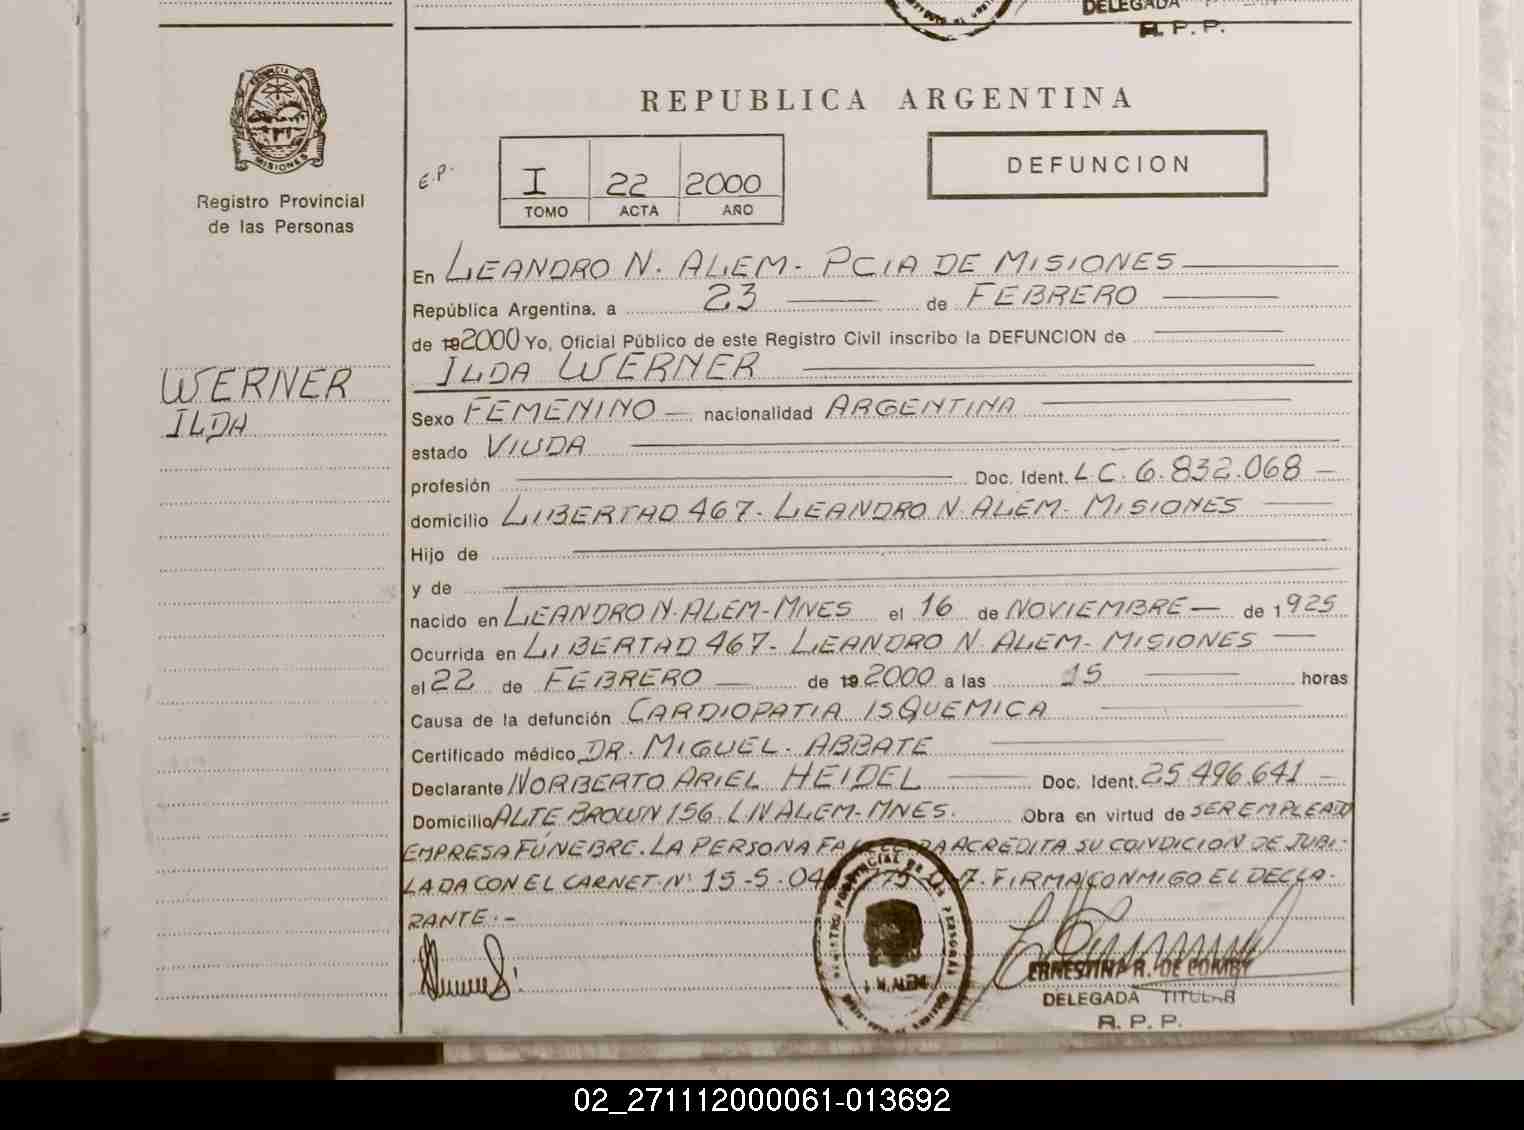 DELEGADA
R. P. P.
PROVINCIA DE
MISIONES
Registro Provincial
de las Personas
REPUBLICA ARGENTINA
E.P.
I 22 2000
TOMO ACTA AÑO
DEFUNCION
En LEANDRO N. ALEM - PCIA DE MISIONES
República Argentina, a 23 de FEBRERO
de 192000 Yo, Oficial Público de este Registro Civil inscribo la DEFUNCION de
ILDA WERNER
WERNER
ILDA
Sexo FEMENINO - nacionalidad ARGENTINA
estado VIUDA
profesión Doc. Ident. LC. 6.832.068 -
domicilio LIBERTAD 467 - LEANDRO N. ALEM - MISIONES
Hijo de
y de
nacido en LEANDRO N. ALEM - MNES el 16 de NOVIEMBRE - de 1925
Ocurrida en LIBERTAD 467 - LEANDRO N. ALEM - MISIONES
el 22 de FEBRERO de 192000 a las 15 horas
Causa de la defunción CARDIOPATIA ISQUEMICA
Certificado médico DR. MIGUEL. ABBATE
Declarante NORBERTO ARIEL HEIDEL Doc. Ident. 25.496.641 -
Domicilio ALTE BROWN 156. L N ALEM - MNES. Obra en virtud de SER EMPLEADO
EMPRESA FÚNEBRE. LA PERSONA ACREDITA SU CONDICION DE JUBI-
LADA CON EL CARNET Nº 15-5-04 FIRMA CONMIGO EL DECLA-
RANTE.-
REGISTRO PROVINCIAL DE LAS PERSONAS
L. N. ALEM
ERNESTINA R. DE COMBY
DELEGADA TITULAR
R. P. P.
02_271112000061-013692